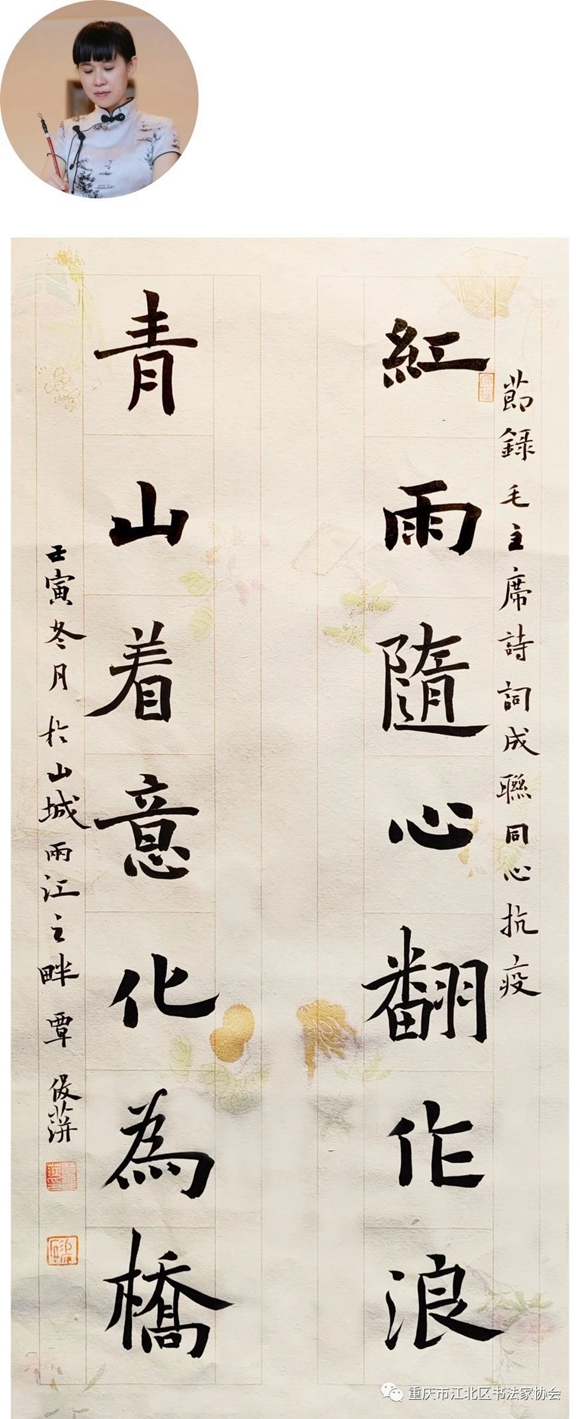 節録毛主席詩詞成聯同心抗疫
紅雨隨心翻作浪
青山着意化為橋
壬寅冬月於山城兩江之畔覃俊蓱
重庆市江北区书法家协会